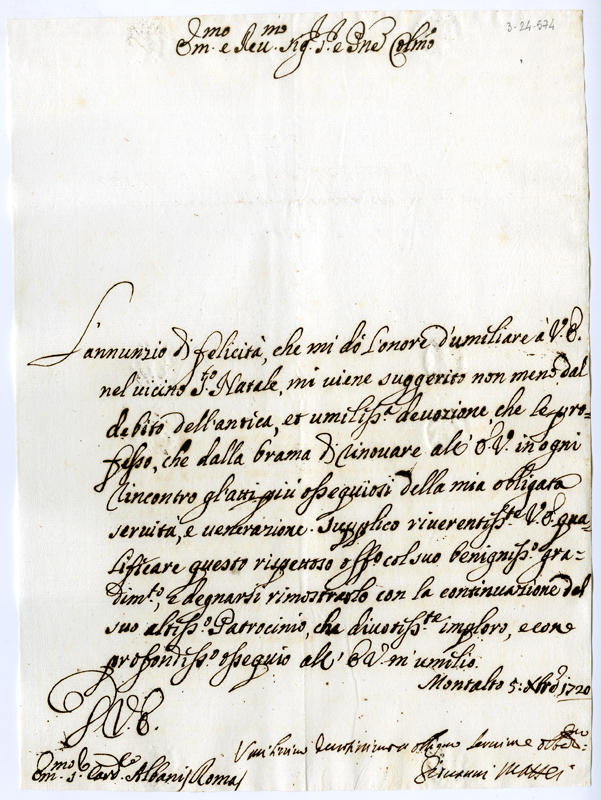 3-24-574
Em.mo e Rev.mo Sig.r S.r e Pne Colmo
L'annunzio di felicità, che mi dò l'onore d'umiliare à V. E.
nel vicino S.to Natale, mi viene suggerito non meno dal
debito dell'antica, et umiliss.a devozione che le pro-
fesso, che dalla brama di rinovare all' E. V. in ogni
rincontro gl'atti più ossequiosi della mia obligata
servitù, e venerazione. Supplico riverentiss.te V. E. qua-
lificare questo rispettoso off.o col suo benigniss.o gra-
dim.to, e degnarsi rimostrarlo con la continuazione del
suo altiss.o Patrocinio, che divotiss.te imploro, e con
profondiss.o ossequio all' E. V. m'umilio.
Montalto 5: Xbre 1720
D V. E.
Umilissimo Devotissimo et obligmo Servitore
Em.mo S.r Card.le Albani Roma
Giovanni Mattei